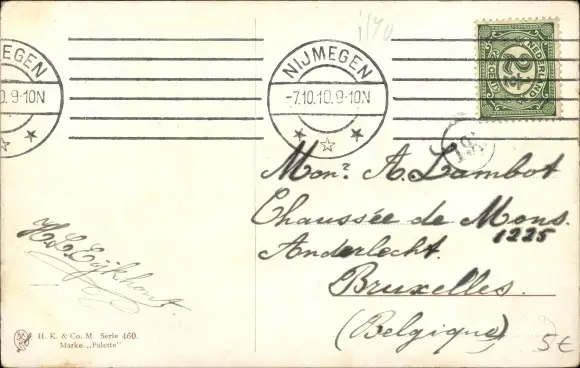 1190
NIJMEGEN
0.9-10N
NIJMEGEN
-7.10.10.9-10N
NEDERLAND
2½
CENT
Monr. A. Lambot
Chaussée de Mons.
1225
Anderlecht.
Bruxelles.
(Belgique)
H. L. Eijkhout.
H. K. & Co. M. Serie 460.
Marke „Palette"
5€